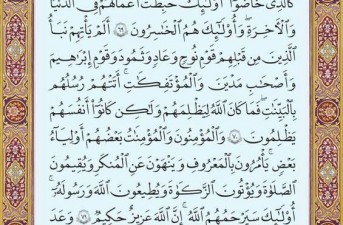 كَٱلَّذِي خَاضُوٓا۟ أُو۟لَٰٓئِكَ حَبِطَتْ أَعْمَٰلُهُمْ فِي ٱلدُّنْيَا
وَٱلْأٓخِرَةِ وَأُو۟لَٰٓئِكَ هُمُ ٱلْخَٰسِرُونَ ٦٩ أَلَمْ يَأْتِهِمْ نَبَأُ
ٱلَّذِينَ مِن قَبْلِهِمْ قَوْمِ نُوحٍ وَعَادٍ وَثَمُودَ وَقَوْمِ إِبْرَٰهِيمَ
وَأَصْحَٰبِ مَدْيَنَ وَٱلْمُؤْتَفِكَٰتِ أَتَتْهُمْ رُسُلُهُم
بِٱلْبَيِّنَٰتِ فَمَا كَانَ ٱللَّهُ لِيَظْلِمَهُمْ وَلَٰكِن كَانُوٓا۟ أَنفُسَهُمْ
يَظْلِمُونَ ٧٠ وَٱلْمُؤْمِنُونَ وَٱلْمُؤْمِنَٰتُ بَعْضُهُمْ أَوْلِيَآءُ
بَعْضٍ يَأْمُرُونَ بِٱلْمَعْرُوفِ وَيَنْهَوْنَ عَنِ ٱلْمُنكَرِ وَيُقِيمُونَ
ٱلصَّلَوٰةَ وَيُؤْتُونَ ٱلزَّكَوٰةَ وَيُطِيعُونَ ٱللَّهَ وَرَسُولَهُۥٓ
أُو۟لَٰٓئِكَ سَيَرْحَمُهُمُ ٱللَّهُ إِنَّ ٱللَّهَ عَزِيزٌ حَكِيمٌ ٧١ وَعَدَ